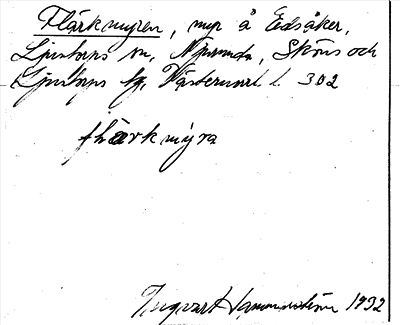 Flärkmyren, myr å Edsåker,
Ljustorps sn, Njurunda, Sköns och
Ljustorps tg, Västernorrl. l. 302
flärkmyra
Ingvar Hammarström 1932